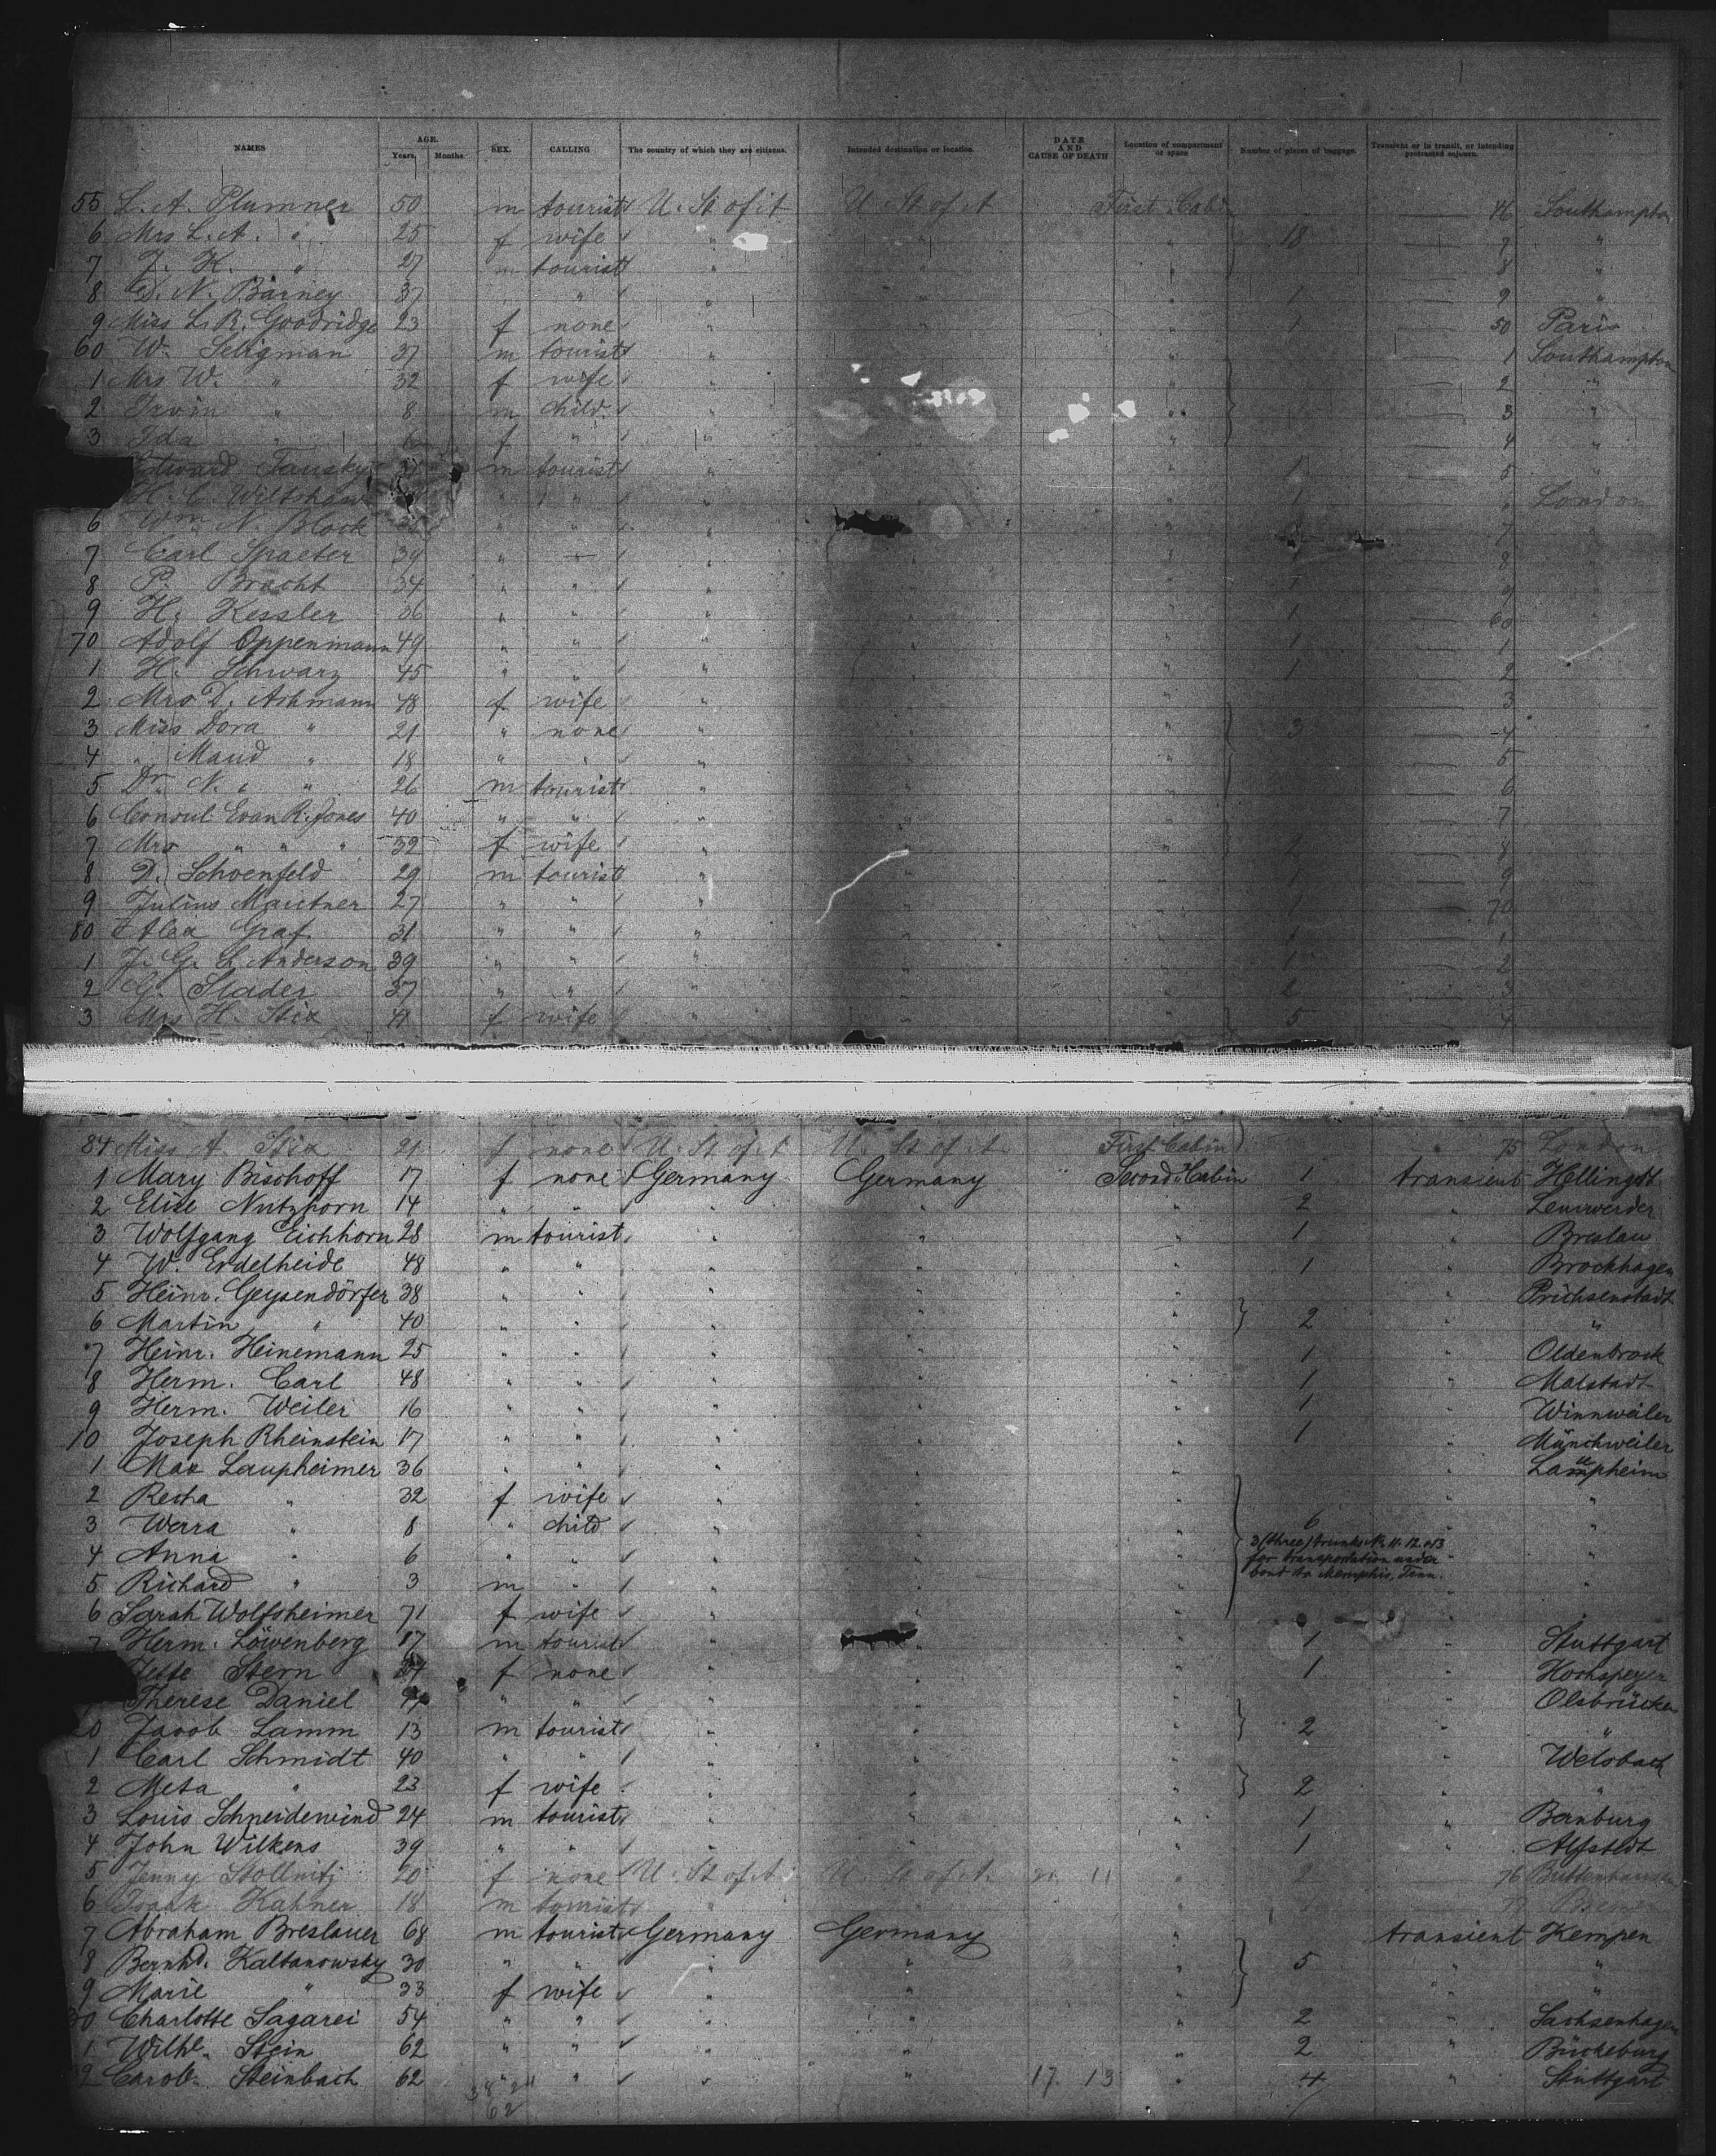 NAMES AGE. Years. Months. SEX. CALLING The country of which they are citizens. Intended destination or location. DATE AND CAUSE OF DEATH Location of compartment or space Number of pieces of baggage. Transient or in transit, or intending protracted sojourn.
55 L. A. Plummer 50 m tourist U. St. of A U. St. of A First Cabin 46 Southampton
6 Mrs L. A. " 25 f wife " " " 18 7 "
7 J. K. " 27 m tourist " " " 8 "
8 D. N. Barney 37 " " " " 1 9 "
9 Miss L. R. Goodridge 23 f none " " " 1 50 Paris
60 W. Seligman 37 m tourist " " " 1 Southampton
1 Mrs W. " 32 f wife " " " 2 "
2 Irwin " 8 m child " " " 3 "
3 Ida " 6 f " " " " 4 "
Edward Tausky m tourist " " " 1 5 "
H. C. Wiltshaw " " " " " 1 London
6 Wm. N. Block " " " " " 7 "
7 Carl Spaeter 39 " " " " " 8
8 P. Bracht 34 " " " " " 1 9
9 H. Kessler 36 " " " " " 1 60
70 Adolf Oppenmann 49 " " " " " 1 1
1 H. Schwarz 45 " " " " " 1 2
2 Mrs D. Ashmann 48 f wife " " " 3
3 Miss Dora " 21 " none " " " 3 4
4 " Maud " 18 " " " " " 5
5 Dr. N. " " 26 m tourist " " " 6
6 Consul Evan R. Jones 40 " " " " " 7
7 Mrs " " " 32 f wife " " " 8
8 D. Schoenfeld 29 m tourist " " " 1 9
9 Julius Maictner 27 " " " " " 1 70
80 Alex Graf 31 " " " " " 1 1
1 J. G. L. Anderson 39 " " " " " 1 2
2 G. Slader 37 " " " " " 3
3 Mrs H. Stix 41 f wife " " " 5 4
84 Miss A. Stix 21 f none U. St. of A U. St. of A. First Cabin " 75 London
1 Mary Bischoff 17 f none Germany Germany " Second Cabin 1 transient Hellingst
2 Elise Nutzhorn 14 " " " " " 2 " Lemwerder
3 Wolfgang Eichhorn 28 m tourist " " " 1 " Breslau
4 W. Erdelheide 48 " " " " " 1 " Brockhagen
5 Heinr. Geysendörfer 38 " " " " " " Prichsenstadt
6 Martin " 40 " " " " " 2 " "
7 Heinr. Heinemann 25 " " " " " 1 " Oldenbrock
8 Herm. Carl 48 " " " " " 1 " Malstadt
9 Herm. Weiler 16 " " " " " 1 " Winnweiler
10 Joseph Rheinstein 17 " " " " " 1 " Münchweiler
1 Max Laupheimer 36 " " " " " Laupheim
2 Recha " 32 f wife " " " " "
3 Werra " 8 " child " " " 6 " "
4 Anna " 6 " " " " " 3 (three) trunks N. 11. 12. & 13 for transportation under bond to Memphis, Tenn. " "
5 Richard " 3 m " " " " " "
6 Sarah Wolfsheimer 71 f wife " " " "
7 Herm. Löwenberg 17 m tourist " " " 1 " Stuttgart
Jette Stern f none " " " 1 " Hochspeyer
Therese Daniel " " " " " " Olsbrücken
20 Jacob Lamm 13 m tourist " " " 2 " "
1 Carl Schmidt 40 " " " " " " Welsbach
2 Meta " 23 f wife " " " 2 " "
3 Louis Schneidewind 24 m tourist " " " 1 " Bernburg
4 John Wilkens 39 " " " " " 1 " Alfstedt
5 Jenny Stollnitz 20 f none U. St. of A. U. St. of A. 11 " 2 76 Buttenhausen
6 Isaak Kahner 18 m tourist " " " 77
7 Abraham Breslauer 68 m tourist Germany Germany " transient Kempen
8 Bernhd. Kaltanowsky 30 " " " " " 5 " "
9 Marie " 33 f wife " " " " "
30 Charlotte Sagarei 54 " " " " " 2 " Sachsenhagen
1 Wilhe. Stein 62 " " " " " 2 " Bückeburg
32 Carob. Steinbach 62 " " " " 17. 13 " 4 " Stuttgart
62